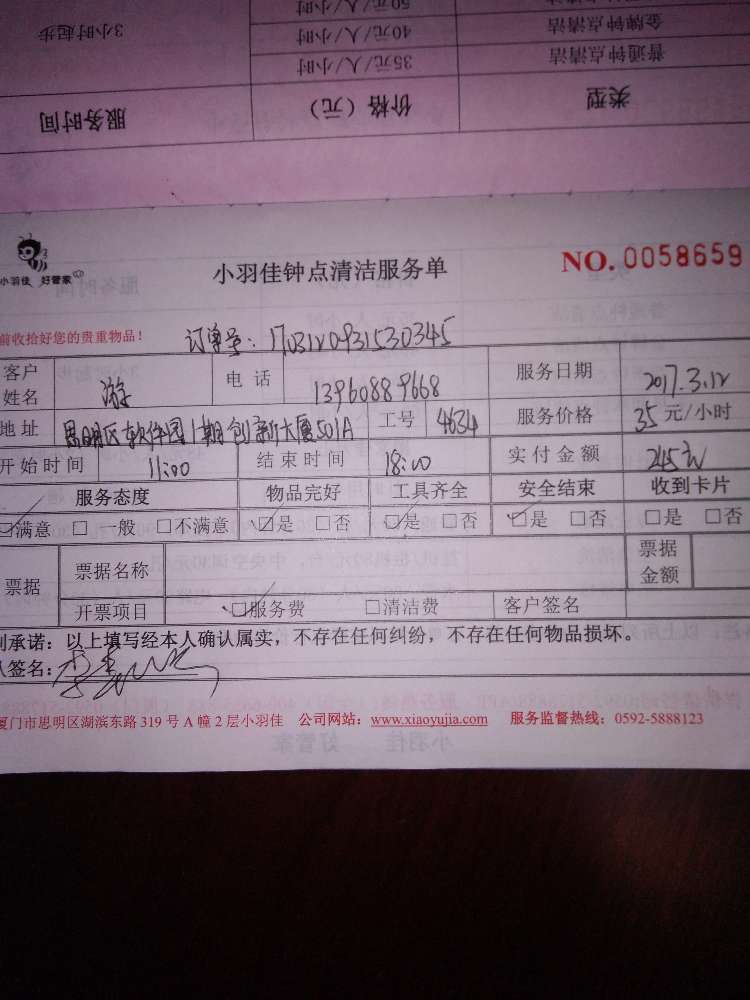 50元/人/小时
3小时起步 40元/人/小时 金牌钟点清洁
35元/人/小时 普通钟点清洁
服务时间 价格（元） 类型
小羽佳 好管家
小羽佳钟点清洁服务单
NO. 0058659
前收拾好您的贵重物品！
订单号：1703120931530345
客户姓名 游 电话 13960889668 服务日期 2017.3.12
地址 思明区软件园1期创新大厦501A 工号 4634 服务价格 35元/小时
开始时间 11:00 结束时间 18:00 实付金额 245元
服务态度 物品完好 工具齐全 安全结束 收到卡片
满意 □一般 □不满意 □是 □否 □是 □否 □是 □否 □是 □否
票据 票据名称 票据金额
开票项目 □服务费 □清洁费 客户签名
承诺：以上填写经本人确认属实，不存在任何纠纷，不存在任何物品损坏。
签名：
厦门市思明区湖滨东路 319 号 A 幢 2 层小羽佳 公司网站：www.xiaoyujia.com 服务监督热线：0592-5888123
小羽佳 好管家